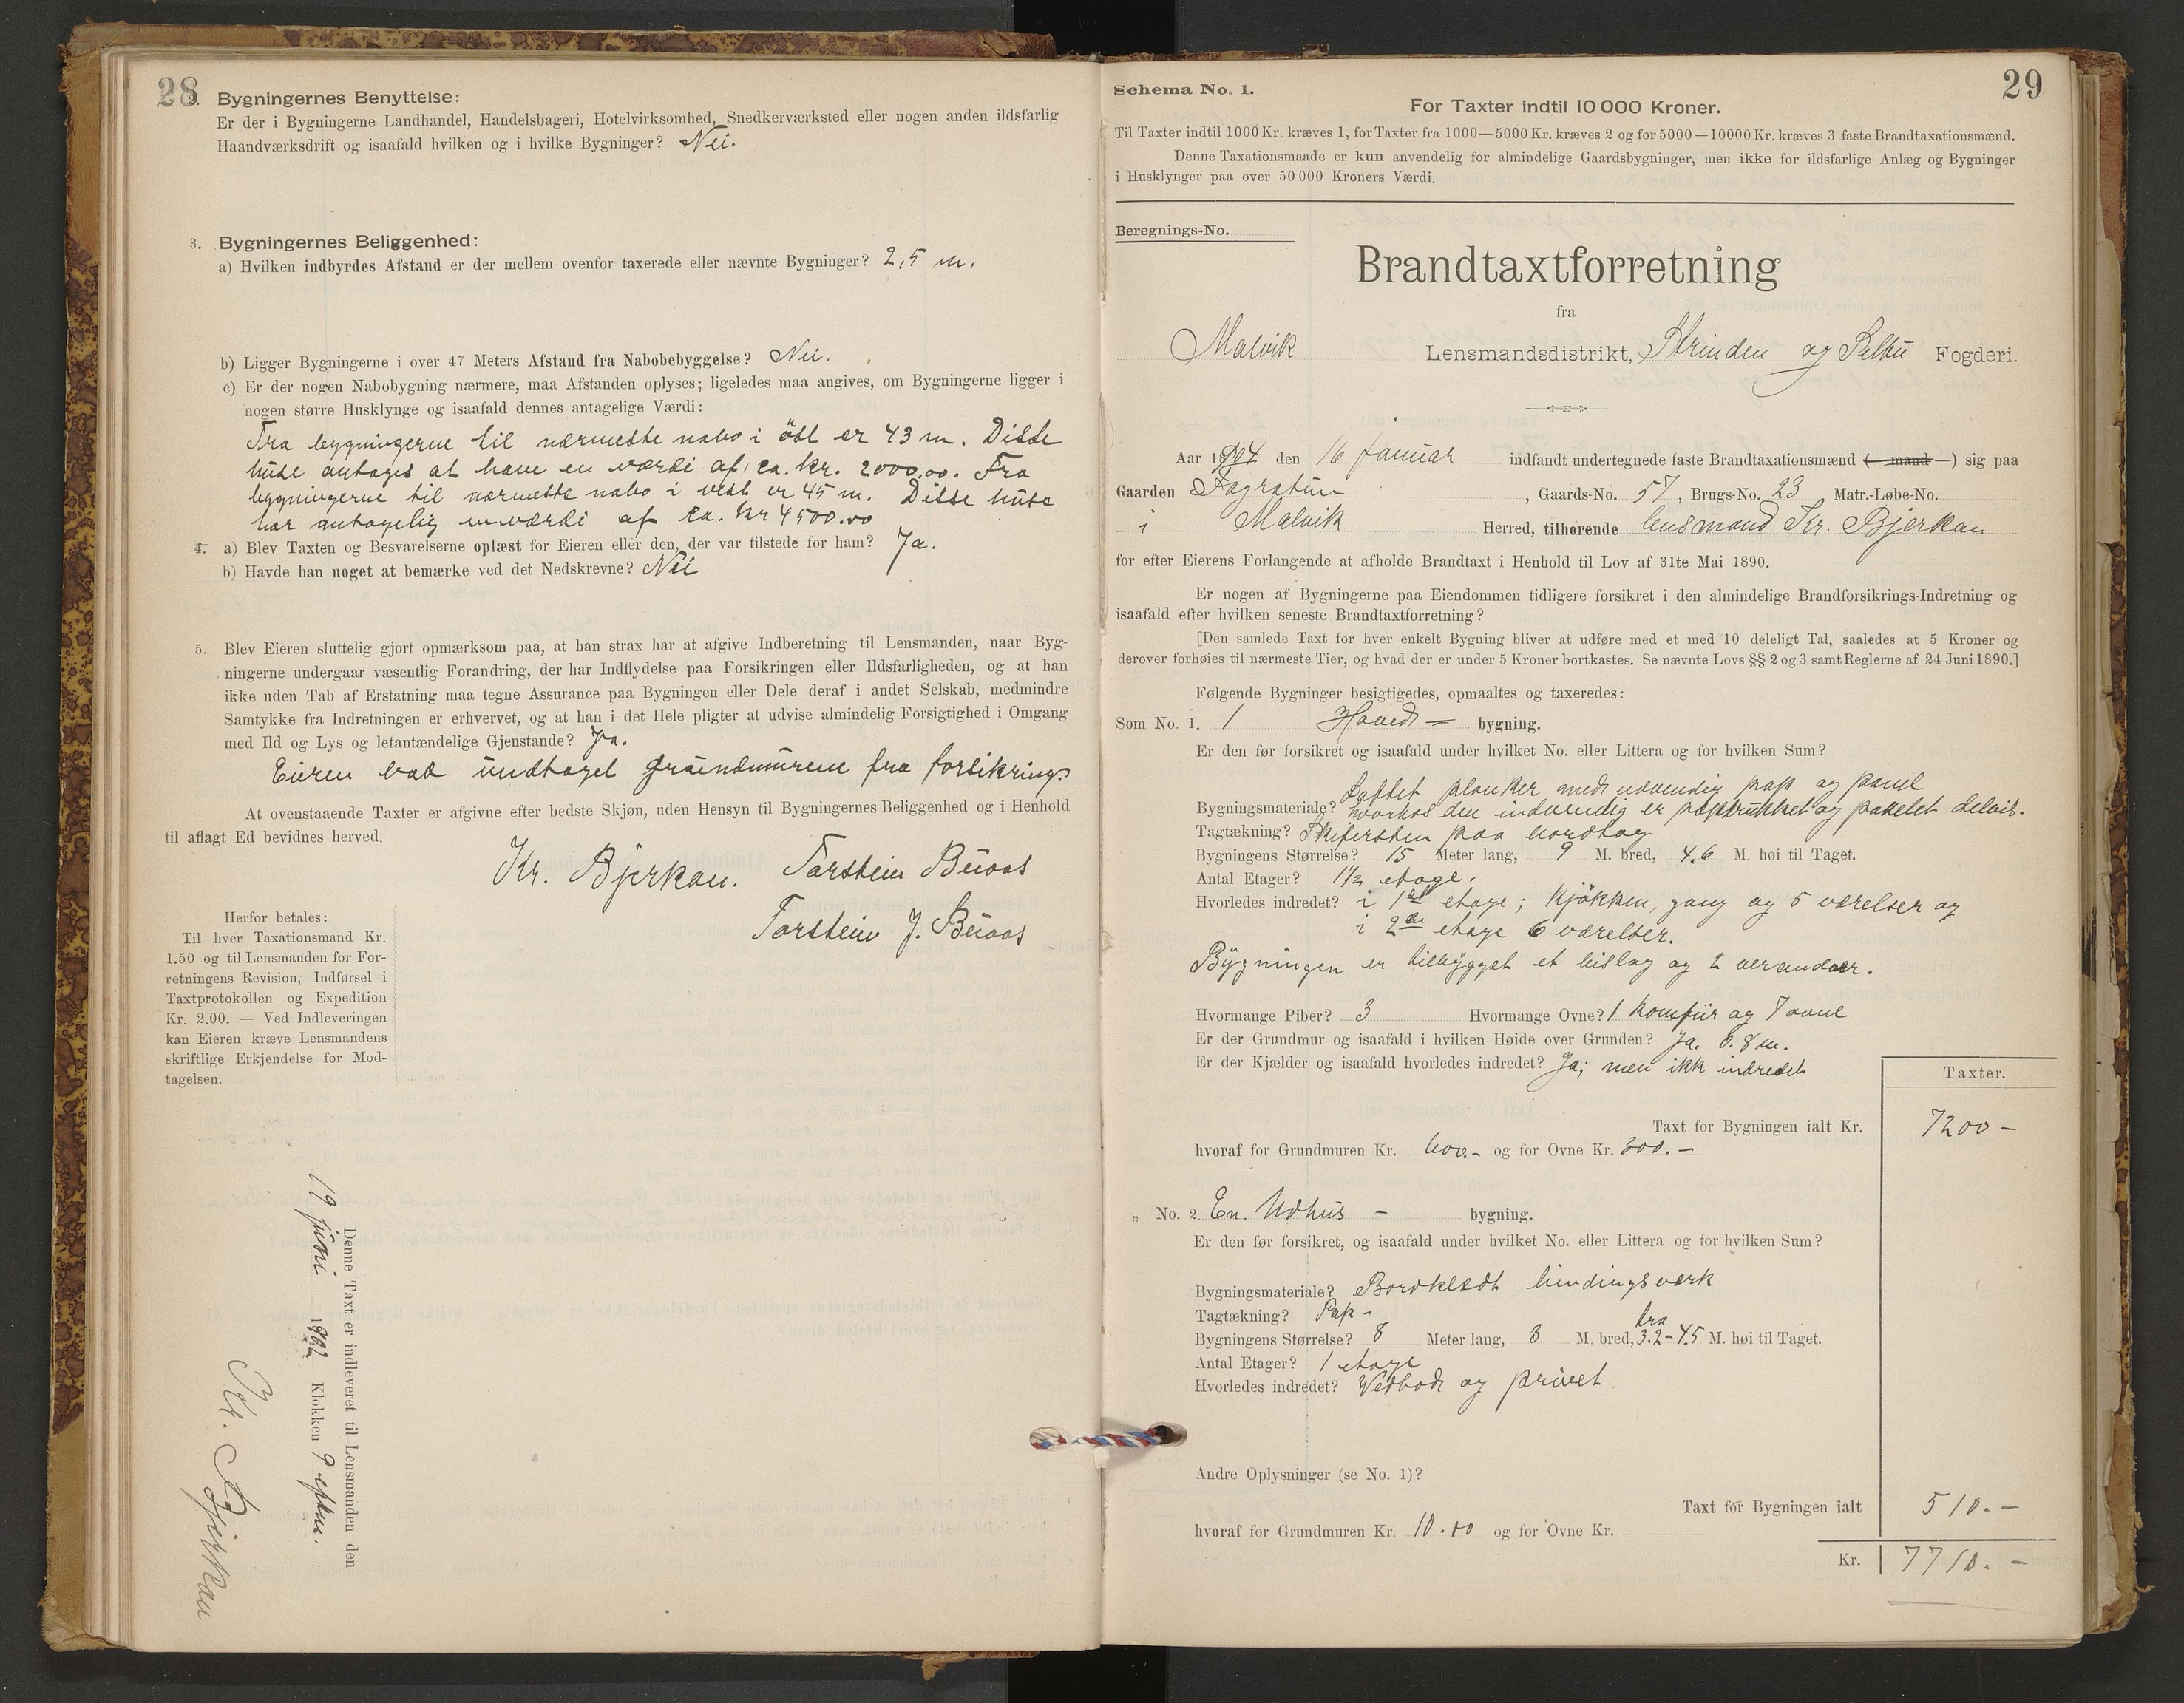 28
2. Bygningernes Benyttelse:
Er der i Bygningerne Landhandel, Handelsbageri, Hotelvirksomhed, Snedkerværksted eller nogen anden ildsfarlig
Haandværksdrift og isaafald hvilken og i hvilke Bygninger? Nei.
3. Bygningernes Beliggenhed:
a) Hvilken indbyrdes Afstand er der mellem ovenfor taxerede eller nævnte Bygninger? 2,5 m.
b) Ligger Bygningerne i over 47 Meters Afstand fra Nabobebyggelse? Nei.
c) Er der nogen Nabobygning nærmere, maa Afstanden oplyses; ligeledes maa angives, om Bygningerne ligger i
nogen større Husklynge og isaafald dennes antagelige Værdi:
Fra bygningerne til nærmeste nabo i öst er 43 m. Disse
huse antages at have en værdi af ca. kr. 2000,00. Fra
bygningerne til nærmeste nabo i vest er 45 m. Disse huse
har antagelig en værdi af ca. kr 4500.00
4. a) Blev Taxten og Besvarelserne oplæst for Eieren eller den, der var tilstede for ham? Ja.
b) Havde han noget at bemærke ved det Nedskrevne? Nei
5. Blev Eieren sluttelig gjort opmærksom paa, at han strax har at afgive Indberetning til Lensmanden, naar Byg-
ningerne undergaar væsentlig Forandring, der har Indflydelse paa Forsikringen eller Ildsfarligheden, og at han
ikke uden Tab af Erstatning maa tegne Assurance paa Bygningen eller Dele deraf i andet Selskab, medmindre
Samtykke fra Indretningen er erhvervet, og at han i det Hele pligter at udvise almindelig Forsigtighed i Omgang
med Ild og Lys og letantændelige Gjenstande? Ja.
Eieren bad undtaget grundmurene fra forsikring.
At ovenstaaende Taxter er afgivne efter bedste Skjøn, uden Hensyn til Bygningernes Beliggenhed og i Henhold
til aflagt Ed bevidnes herved.
Kr. Bjerkan. Torstein Buaas
Torstein J. Buaas
Herfor betales:
Til hver Taxationsmand Kr.
1.50 og til Lensmanden for For-
retningens Revision, Indførsel i
Taxtprotokollen og Expedition
Kr. 2.00. — Ved Indleveringen
kan Eieren kræve Lensmandens
skriftlige Erkjendelse for Mod-
tagelsen.
Denne Taxt er indleveret til Lensmanden den
19 juni 1902 Klokken 9 eftm.
Kr. Bjerkan
29
Schema No. 1.
For Taxter indtil 10 000 Kroner.
Til Taxter indtil 1000 Kr. kræves 1, for Taxter fra 1000—5000 Kr. kræves 2 og for 5000—10000 Kr. kræves 3 faste Brandtaxationsmænd.
Denne Taxationsmaade er kun anvendelig for almindelige Gaardsbygninger, men ikke for ildsfarlige Anlæg og Bygninger
i Husklynger paa over 50 000 Kroners Værdi.
Beregnings-No.
Brandtaxtforretning
fra
Malvik Lensmandsdistrikt, Strinden og Selbu Fogderi.
Aar 1904 den 16 Januar indfandt undertegnede faste Brandtaxationsmænd (— mand —) sig paa
Gaarden Fagratun, Gaards-No. 57, Brugs-No. 23 Matr.-Løbe-No.
i Malvik Herred, tilhørende lensmand Kr. Bjerkan
for efter Eierens Forlangende at afholde Brandtaxt i Henhold til Lov af 31te Mai 1890.
Er nogen af Bygningerne paa Eiendommen tidligere forsikret i den almindelige Brandforsikrings-Indretning og
isaafald efter hvilken seneste Brandtaxtforretning?
[Den samlede Taxt for hver enkelt Bygning bliver at udføre med et med 10 deleligt Tal, saaledes at 5 Kroner og
derover forhøies til nærmeste Tier, og hvad der er under 5 Kroner bortkastes. Se nævnte Lovs §§ 2 og 3 samt Reglerne af 24 Juni 1890.]
Følgende Bygninger besigtigedes, opmaaltes og taxeredes:
Som No. 1. 1 Hoved — bygning.
Er den før forsikret og isaafald under hvilket No. eller Littera og for hvilken Sum?
Laftet planker med udvendig pap og panel
Bygningsmateriale? hvorhos den indvendig er paptrukket og panelet delvis.
Tagtækning? Skifersten paa bordtag
Bygningens Størrelse? 15 Meter lang, 9 M. bred, 4.6 M. høi til Taget.
Antal Etager? 1½ etage.
Hvorledes indredet? i 1ste etage; Kjøkken, gang og 5 værelser og
i 2den etage 6 værelser.
Bygningen er tilbygget et bislag og 2 verandaer.
Hvormange Piber? 3 Hvormange Ovne? 1 Komfur og 7 ovne
Er der Grundmur og isaafald i hvilken Høide over Grunden? Ja. 0.8 m.
Er der Kjælder og isaafald hvorledes indredet? Ja; men ikk indredet
Taxter.
Taxt for Bygningen ialt Kr. 7200 —
hvoraf for Grundmuren Kr. 600.- og for Ovne Kr. 300. —
„ No. 2. En. Udhus - bygning.
Er den før forsikret, og isaafald under hvilket No. eller Littera og for hvilken Sum?
Bygningsmateriale? Bordklædt bindingsværk
Tagtækning? Pap -
Bygningens Størrelse? 8 Meter lang, 3 M. bred, fra 3.2 - 4.5 M. høi til Taget.
Antal Etager? 1 etage
Hvorledes indredet? Vedbod og privet
Andre Oplysninger (se No. 1)?
Taxt for Bygningen ialt 510. —
hvoraf for Grundmuren Kr. 10.00 og for Ovne Kr.
Kr. 7710. —